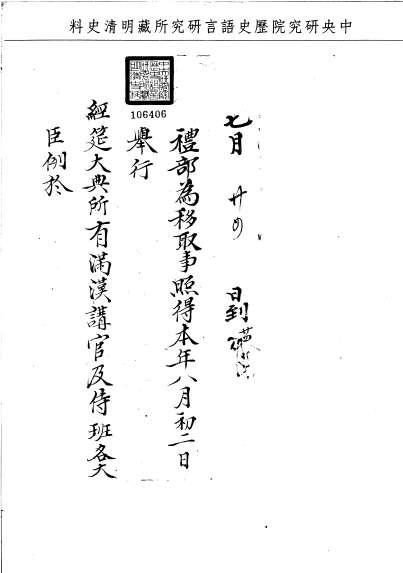 中央研究院歷史語言研究所藏明清史料
106406
七月 廿四 日到
禮部為移取事照得本年八月初二日
舉行
經筵大典所有滿漢講官及侍班各大
臣例於